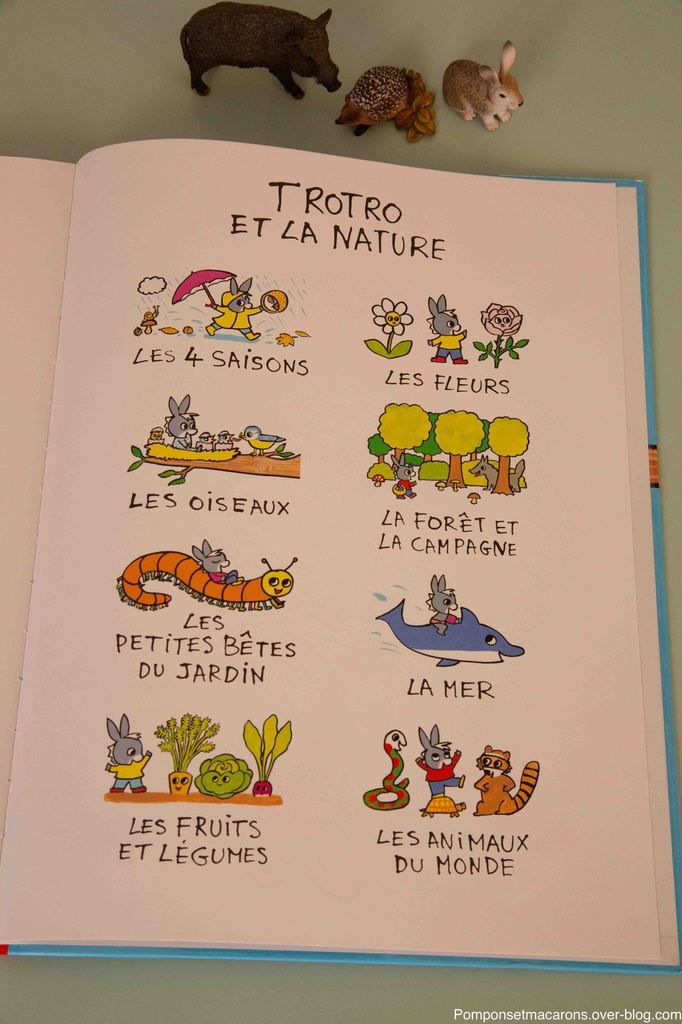 TROTRO
ET LA NATURE
LES 4 SAISONS
LES FLEURS
LES OISEAUX
LA FORÊT ET
LA CAMPAGNE
LES
PETITES BÊTES
DU JARDIN
LA MER
LES FRUITS
ET LÉGUMES
LES ANIMAUX
DU MONDE
Pomponsetmacarons.over-blog.com